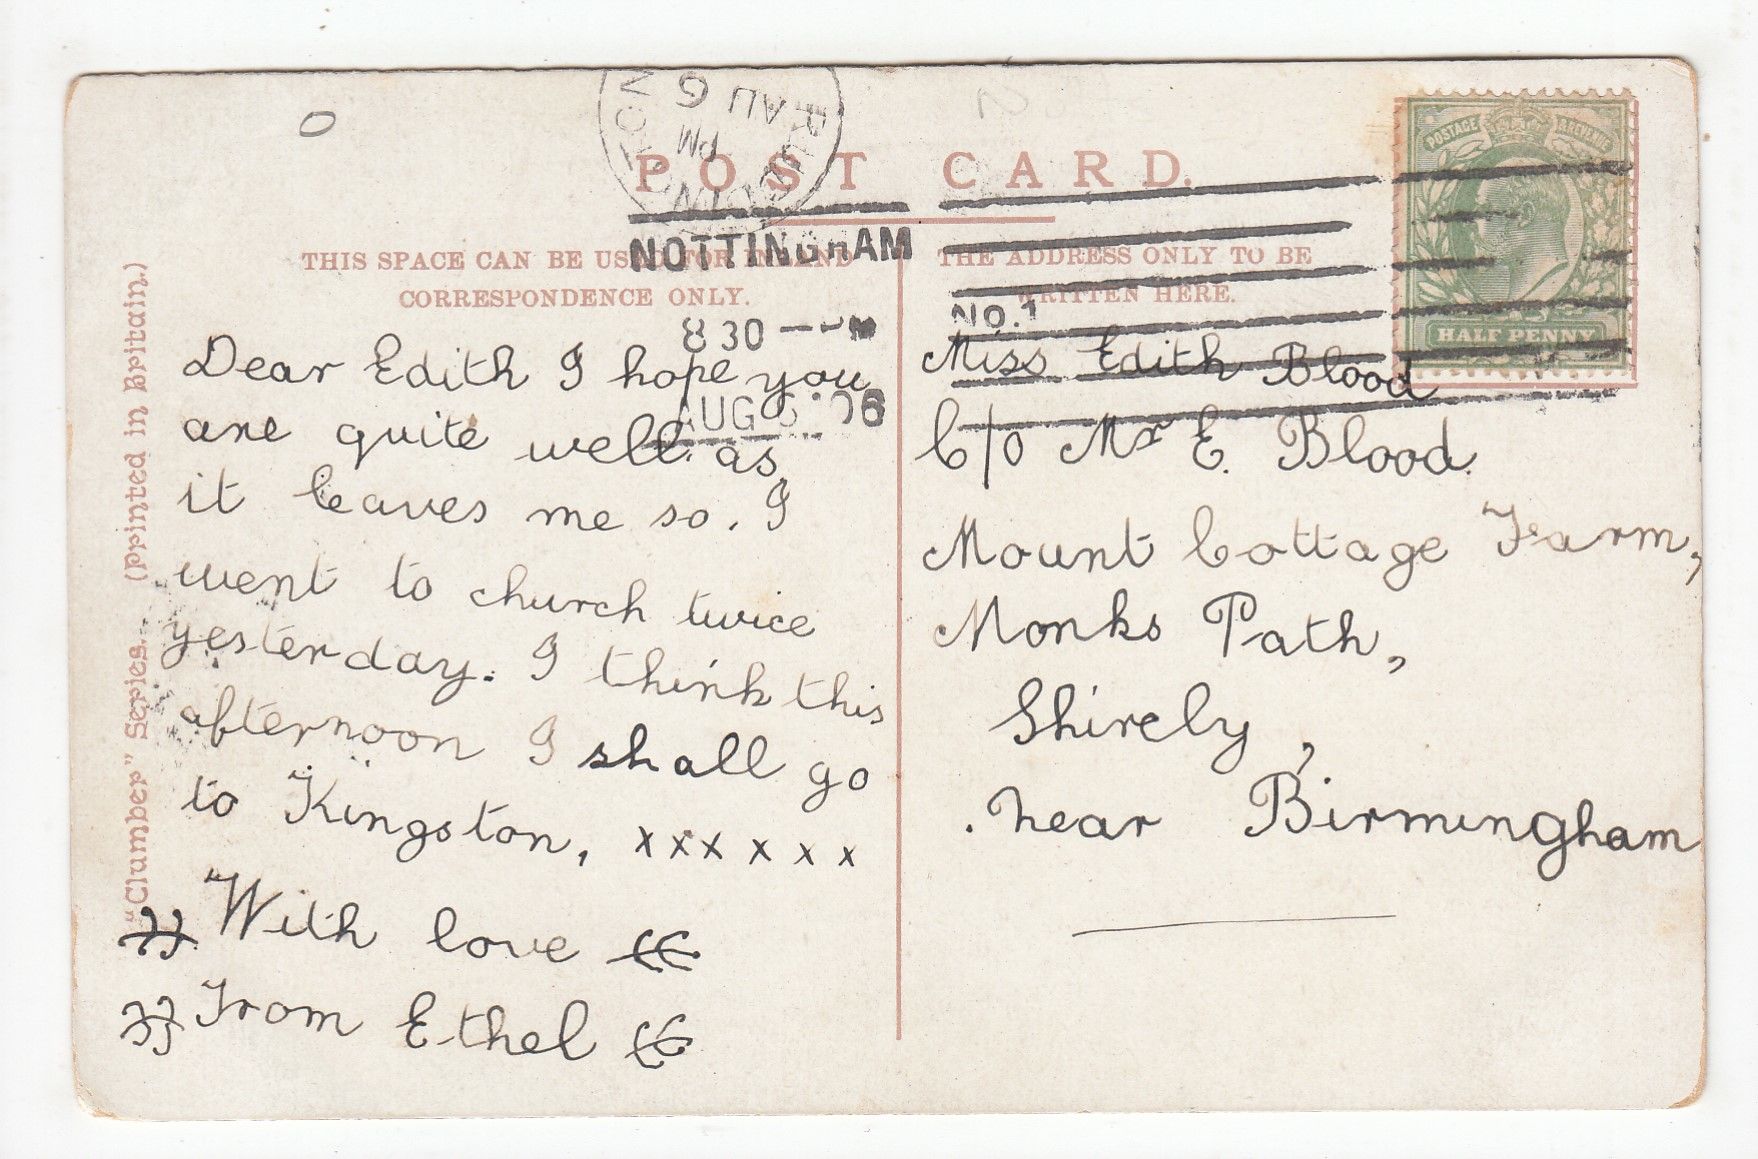 POST CARD.
THIS SPACE CAN BE USED FOR INLAND
CORRESPONDENCE ONLY.
THE ADDRESS ONLY TO BE
WRITTEN HERE.
AU 6
PM
NOTTINGHAM
No.1
8 30
AUG 6 06
POSTAGE REVENUE
HALF PENNY
Dear Edith I hope you
are quite well as
it leaves me so. I
went to church twice
yesterday. I think this
afternoon I shall go
to Kingston, x x x x x x
With love
From Ethel
Miss Edith Blood
C/o Mr E. Blood.
Mount Cottage Farm,
Monks Path,
Shirely,
near Birmingham
"Clumber" Series. (Printed in Britain.)